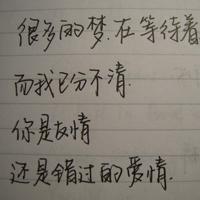 很多的梦.在等待着
而我已分不清.
你是友情
还是错过的爱情.